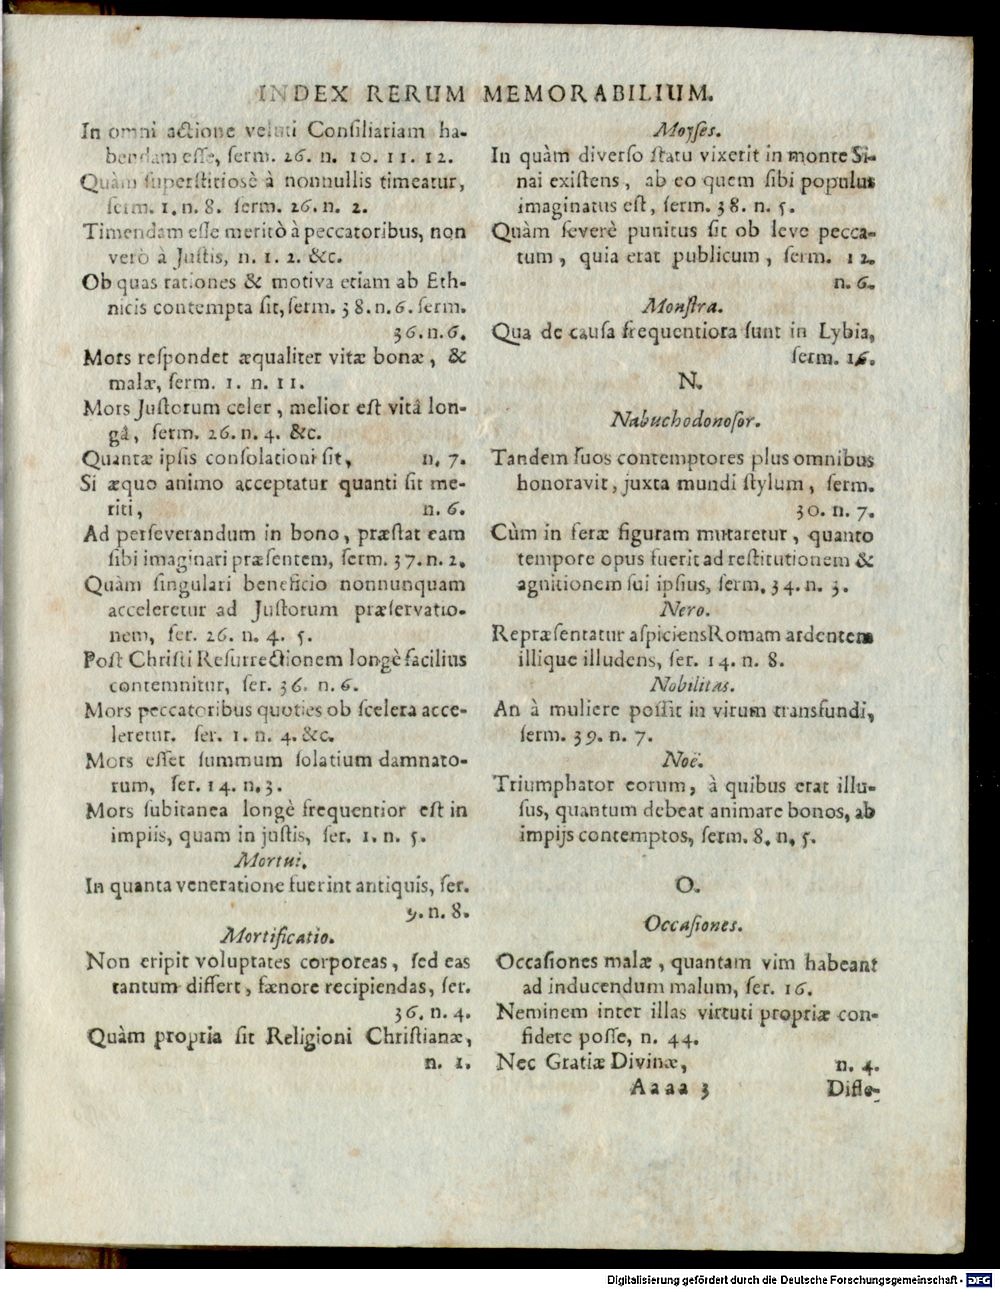 INDEX RERUM MEMORABILIUM.
In omni actione veluti Consiliariam ha-
bendam esse, serm. 26. n. 10. 11. 12.
Quàm superstitiosè à nonnullis timeatur,
serm. 1. n. 8. serm. 26. n. 2.
Timendam esse meritò à peccatoribus, non
verò à Justis, n. 1. 2. &c.
Ob quas rationes & motiva etiam ab Eth-
nicis contempta sit, serm. 38. n. 6. serm.
36. n. 6.
Mors respondet æqualiter vitæ bonæ, &
malæ, serm. 1. n. 11.
Mors Justorum celer, melior est vitâ lon-
gâ, serm. 26. n. 4. &c.
Quantæ ipsis consolationi sit, n. 7.
Si æquo animo acceptatur quanti sit me-
riti, n. 6.
Ad perseverandum in bono, præstat eam
sibi imaginari præsentem, serm. 37. n. 2.
Quàm singulari beneficio nonnunquam
acceleretur ad Justorum præservatio-
nem, ser. 26. n. 4. 5.
Post Christi Resurrectionem longè facilius
contemnitur, ser. 36. n. 6.
Mors peccatoribus quoties ob scelera acce-
leretur. ser. 1. n. 4. &c.
Mors esset summum solatium damnato-
rum, ser. 14. n. 3.
Mors subitanea longè frequentior est in
impiis, quam in justis, ser. 1. n. 5.
Mortui.
In quanta veneratione fuerint antiquis, ser.
9. n. 8.
Mortificatio.
Non eripit voluptates corporeas, sed eas
tantum differt, fænore recipiendas, ser.
36. n. 4.
Quàm propria sit Religioni Christianæ,
n. 1.
Moyses.
In quàm diverso statu vixerit in monte Si-
nai existens, ab eo quem sibi populus
imaginatus est, serm. 38. n. 5.
Quàm severè punitus sit ob leve pecca-
tum, quia erat publicum, serm. 12.
n. 6.
Monstra.
Qua de causa frequentiora sunt in Lybia,
serm. 16.
N.
Nabuchodonosor.
Tandem suos contemptores plus omnibus
honoravit, juxta mundi stylum, serm.
30. n. 7.
Cùm in feræ figuram mutaretur, quanto
tempore opus fuerit ad restitutionem &
agnitionem sui ipsius, serm. 34. n. 3.
Nero.
Repræsentatur aspiciens Romam ardentem
illique illudens, ser. 14. n. 8.
Nobilitas.
An à muliere possit in virum transfundi,
serm. 39. n. 7.
Noë.
Triumphator eorum, à quibus erat illu-
sus, quantum debeat animare bonos, ab
impijs contemptos, serm. 8. n. 5.
O.
Occasiones.
Occasiones malæ, quantam vim habeant
ad inducendum malum, ser. 16.
Neminem inter illas virtuti propriæ con-
fidere posse, n. 44.
Nec Gratiæ Divinæ, n. 4.
Aaaa 3 Diffe-
Digitalisierung gefördert durch die Deutsche Forschungsgemeinschaft - DFG